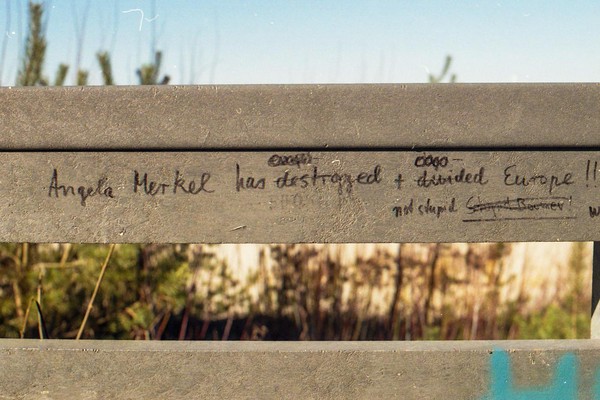 Angela Merkel has destroyed + divided Europe !!
not stupid Stupid Boomer!